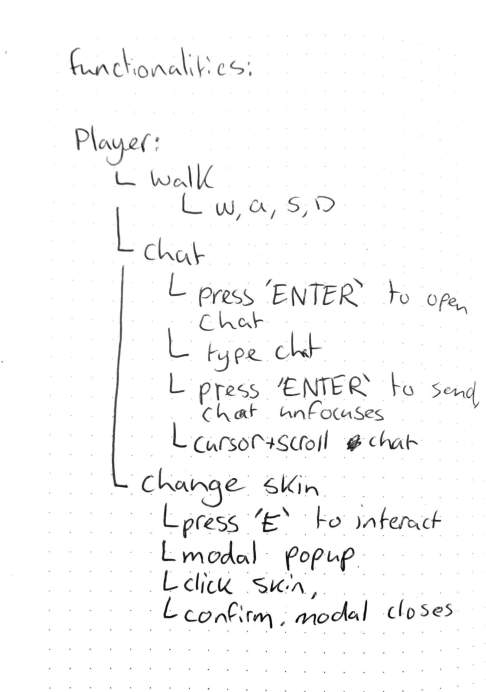 functionalities:
Player:
walk
w, a, s, D
chat
press 'ENTER' to open
chat
type chat
press 'ENTER' to send,
chat unfocuses
cursor+scroll chat
change skin
press 'E' to interact
modal popup
click skin,
confirm. modal closes